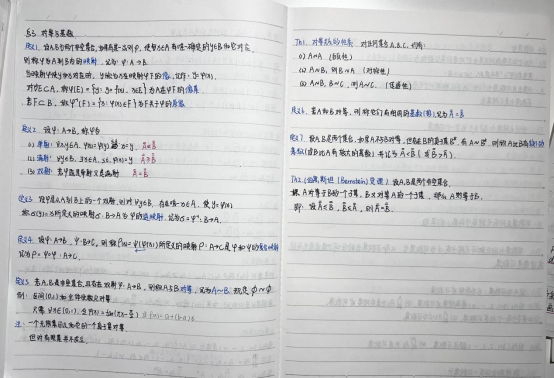 §3. 对等与基数
定义1. 设A,B为两个非空集合,如果存在一法则φ,使每个x∈A有唯一确定的y∈B和它对应,
则称φ为A到B内的映射,记作 φ: A→B.
当映射φ使y和x对应时,y称为x在映射φ下的像,记作: y=φ(x).
对∀E⊂A, 称φ(E)={y: y=φ(x), x∈E}为E在φ下的像集
若F⊂B, 称φ⁻¹(F)={x: φ(x)∈F}为F关于φ的原像
定义2. 设φ: A→B, 称φ为
(1) 单射: ∀x,y∈A, φ(x)=φ(y) x=y.
(2) 满射: ∀y∈B, ∃x∈A, s.t. φ(x)=y.
(3) 双射: 若φ既是单射又是满射
定义3. 设φ是从A到B上的一个双射,则对∀y∈B, 存在唯一x∈A, 使y=φ(x)
称σ(y)=x所定义的映射σ: B→A为φ的逆映射,记为σ=φ⁻¹: B→A.
定义4. 设φ: A→B, ψ: B→C, 则称ρ(x)=ψ(φ(x))所定义的映射ρ: A→C是φ和ψ的复合映射
记为ρ=ψ∘φ: A→C.
定义5. 若A,B是非空集合,且存在双射φ: A→B, 则称A与B对等, 记为A~B. 规定 ∅~∅
例: 区间(0,1)和全体实数是对等
只需∀x∈(0,1), 令φ(x)=tan(πx-π/2)
注: 一个无限集可以和它的一个真子集对等.
但对有限集并不成立.
Th1. 对等关系的性质: 对任何集合A,B,C, 均有:
(1) A~A (自反性)
(2) A~B, 则B~A (对称性)
(3) A~B, B~C, 则A~C. (传递性)
定义6. 若A和B对等,则称它们有相同的基数(势),记为A̿=B̿
定义7. 设A,B是两个集合,如果A不与B对等,但存在B的真子集B*, 有A~B*, 则称A比B有较小的
基数(或B比A有较大的基数)并记为A̿<B̿(或B̿>A̿).
Th2. (伯恩斯坦 (Bernstein) 定理) 设A,B是两个非空集合,
A对等于B的一个子集, B又对等A的一个子集, 那么A对等于B.
即: 设A̿≤B̿, B̿≤A̿, 则A̿=B̿.